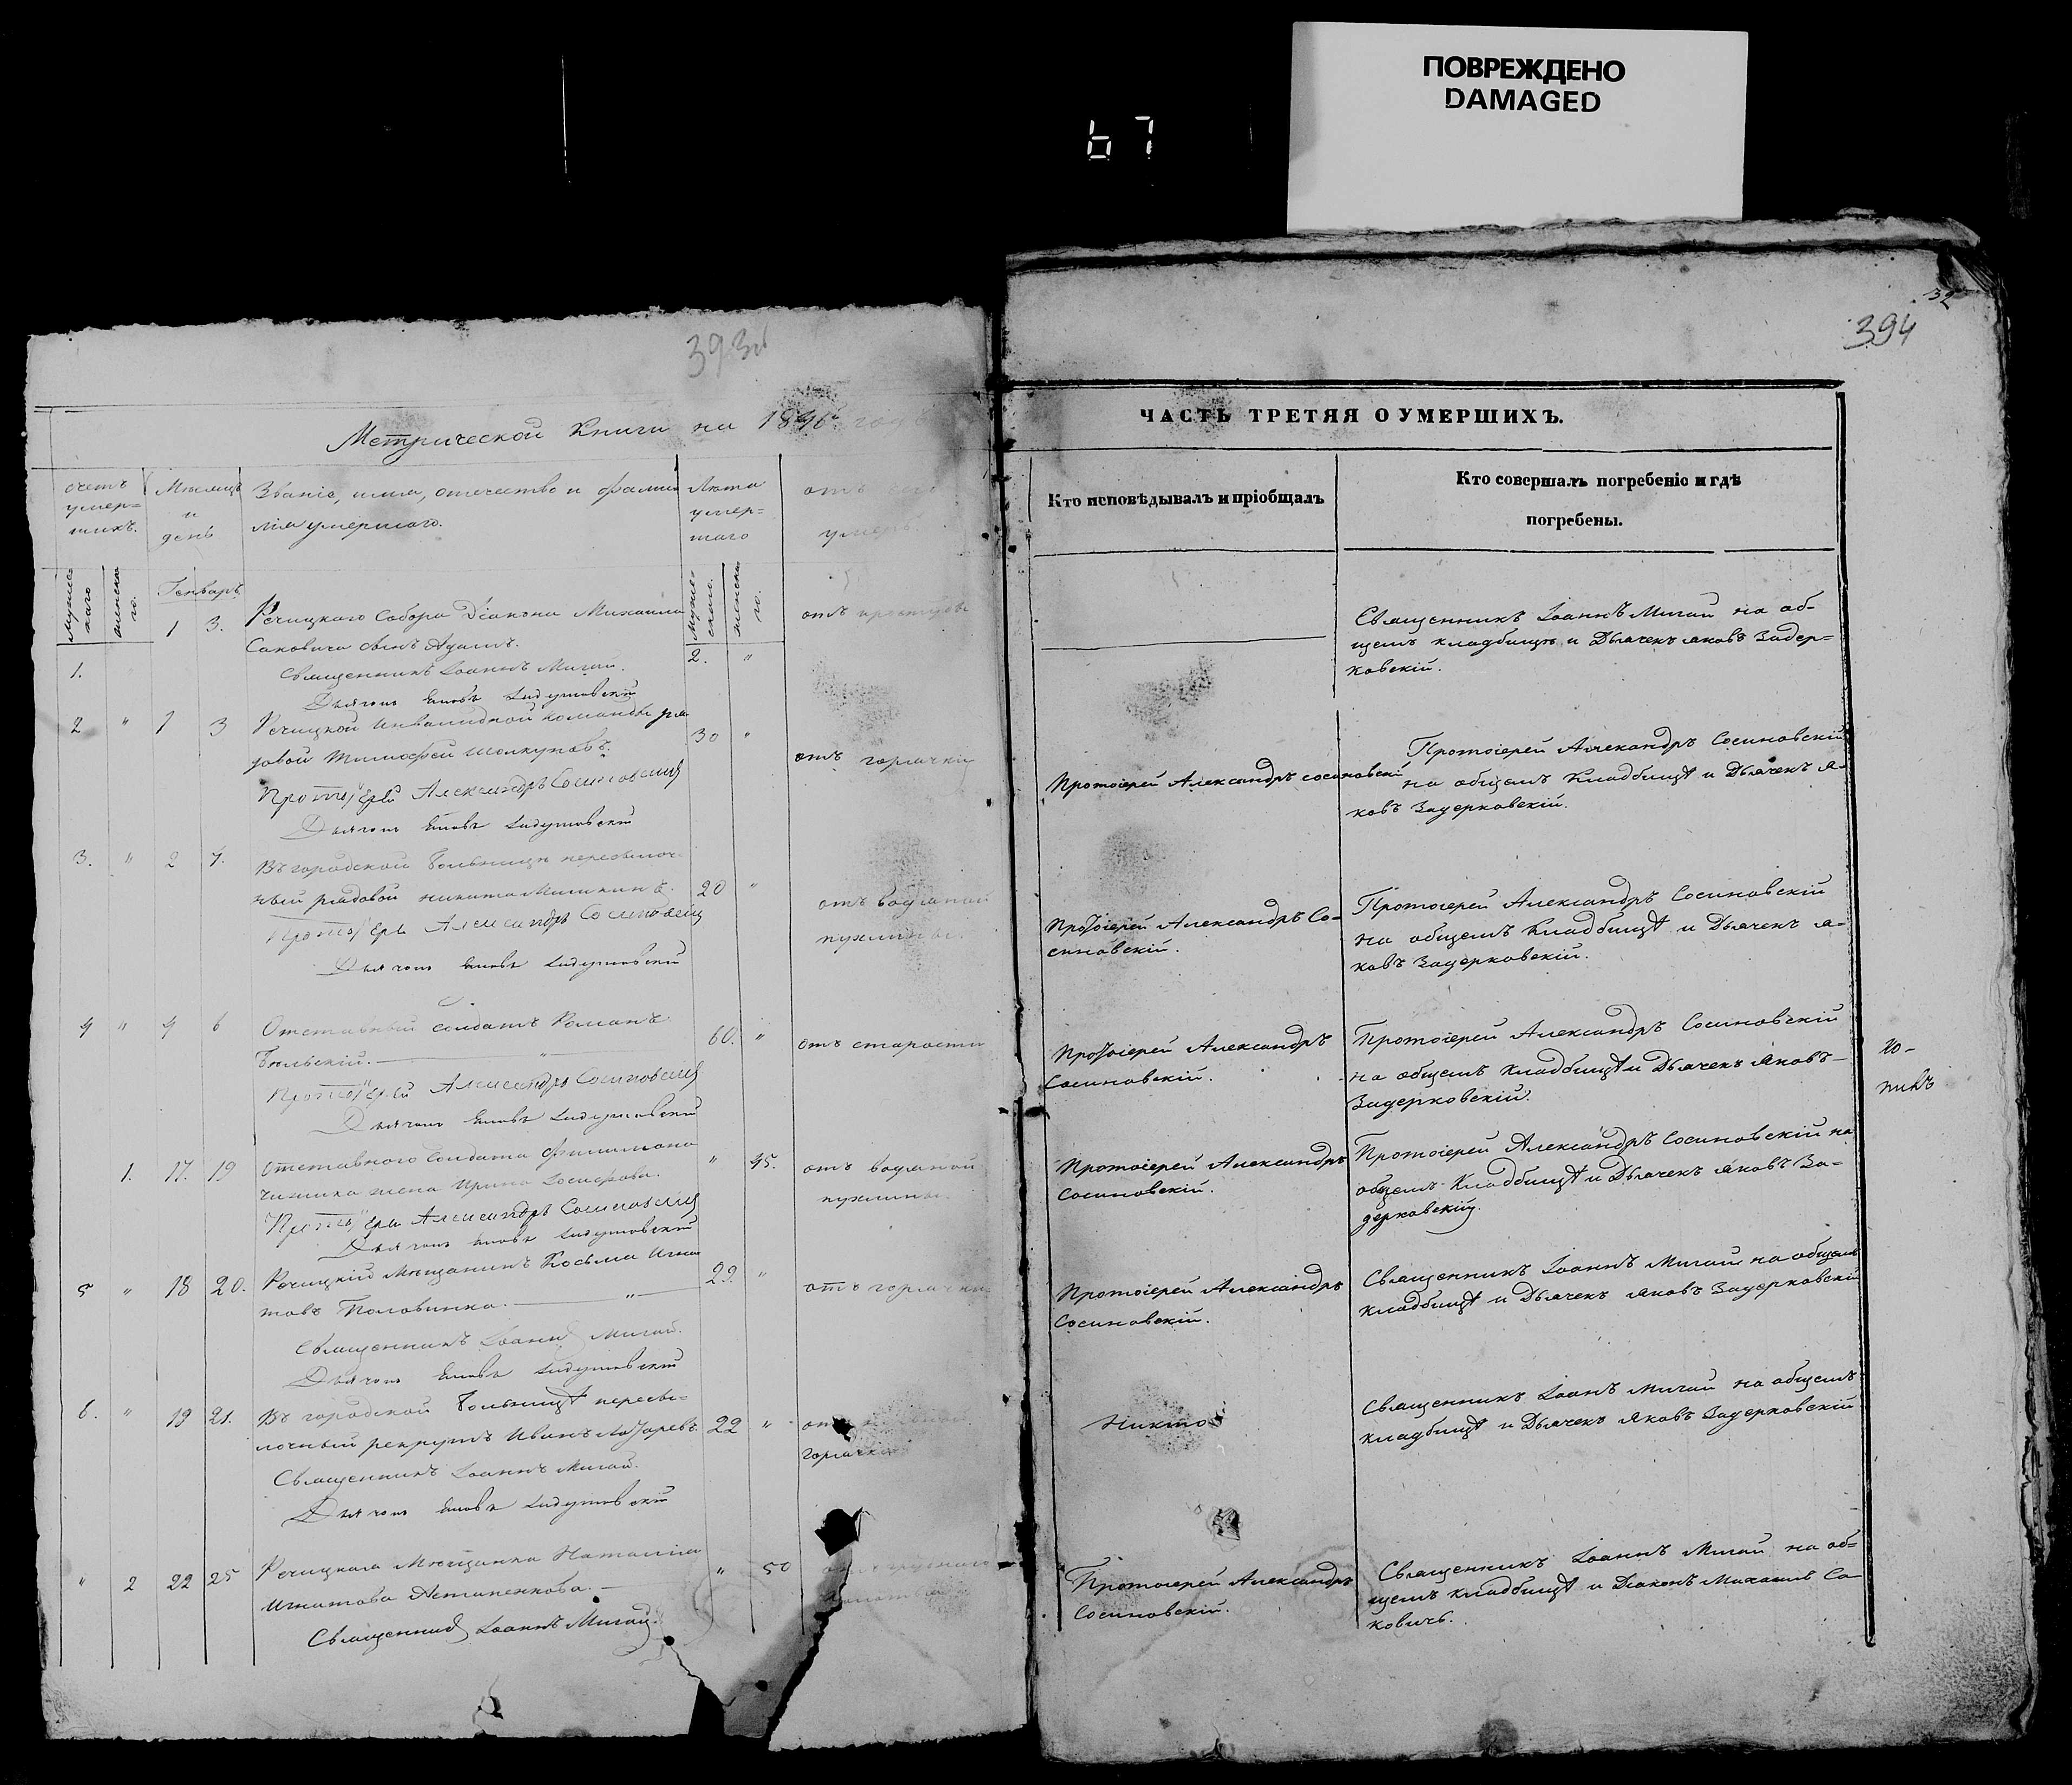 ПОВРЕЖДЕНО
DAMAGED
67
393об
Метрической Книги на 184 годъ
счетъ умер=шихъ.
Мѣсяцъ и день
Званіе, имя, отечество и фами
лія умершаго.
Лѣта умер=шаго
отъ
умеръ.
мужес
каго
женска
го.
Генварь
муже=
скаго.
женска
го.
1. 1 3. Речицкаго Собора Діакона Михаила 2. " отъ простуды
Саковича сынъ Адамъ.
Священникъ Іоаннъ Мигай.
Дьячокъ Яковъ
2 " 1 3 Речицкой Инвалидной команды ря 30 " отъ горячки
довой Тимофей Шолкуновъ.
Протоіерей Александръ Сосиновскій
Дьячокъ Яковъ
3. " 2 7. Въ городской больницѣ пересылоч=
ный рядовой никита Мишкинъ. 20 " отъ водяной
Протоіерей Александръ Сосиновскій
Дьячокъ Яковъ
4 " 4 6 Отставный солдатъ Романъ 60. " отъ старости
Бѣльскій. — " —
Протоіерей Александръ Сосиновскій
Дьячокъ Яковъ
1. 17. 19 Отставного Солдата Филимона " 45. отъ водяной
жена Ирина Іосифова.
Протоіерей Александръ Сосиновскій
Дьячокъ Яковъ
5 " 18 20. Речицкій Мѣщанинъ Косьма Игна 29. " отъ горячки
товъ Половинка. — " —
Священникъ Іоаннъ Мигай.
Дьячокъ Яковъ
6. " 19 21. Въ городской больницѣ пересы=
лочный рекрутъ Иванъ Лазаревъ. 22 " горячки
Священникъ Іоаннъ Мигай.
Дьячокъ Яковъ
" 2 22 25 Речицкая Мѣщанка Наталія " 50
Игнатова Астапенкова. —
Священникъ Іоаннъ Мигай.
32
394
ЧАСТЬ ТРЕТЯЯ О УМЕРШИХЪ.
Кто исповѣдывалъ и пріобщалъ
Кто совершалъ погребеніе и гдѣ
погребены.
Священникъ Іоаннъ Мигай на об-
щемъ кладбищѣ и Дьячекъ Яковъ Задер=
ковскій.
Протоіерей Александръ Сосиновскій
Протоіерей Александръ Сосиновскій
на общемъ Кладбищѣ и Дьячекъ Я-
ковъ Задерковскій.
Протоіерей Александръ Со-
синовскій.
Протоіерей Александръ Сосиновскій
на общемъ Кладбищѣ и Дьячекъ Я-
ковъ Задерковскій.
Протоіерей Александръ
Сосиновскій.
Протоіерей Александръ Сосиновскій
на общемъ Кладбищѣ и Дьячекъ Яковъ
Задерковскій.
Протоіерей Александръ
Сосиновскій.
Протоіерей Александръ Сосиновскій на
общемъ Кладбищѣ и Дьячекъ Яковъ За-
дерковскій.
Протоіерей Александръ
Сосиновскій.
Священникъ Іоаннъ Мигай на общемъ
кладбищѣ и Дьячекъ Яковъ Задерковскій
Никто
Священникъ Іоанъ Мигай на общемъ
кладбищѣ и Дьячекъ Яковъ Задерковскій
Протоіерей Александръ
Сосиновскій.
Священникъ Іоаннъ Мигай на об=
щемъ кладбищѣ и Діаконъ Михаилъ Са
ковичь.